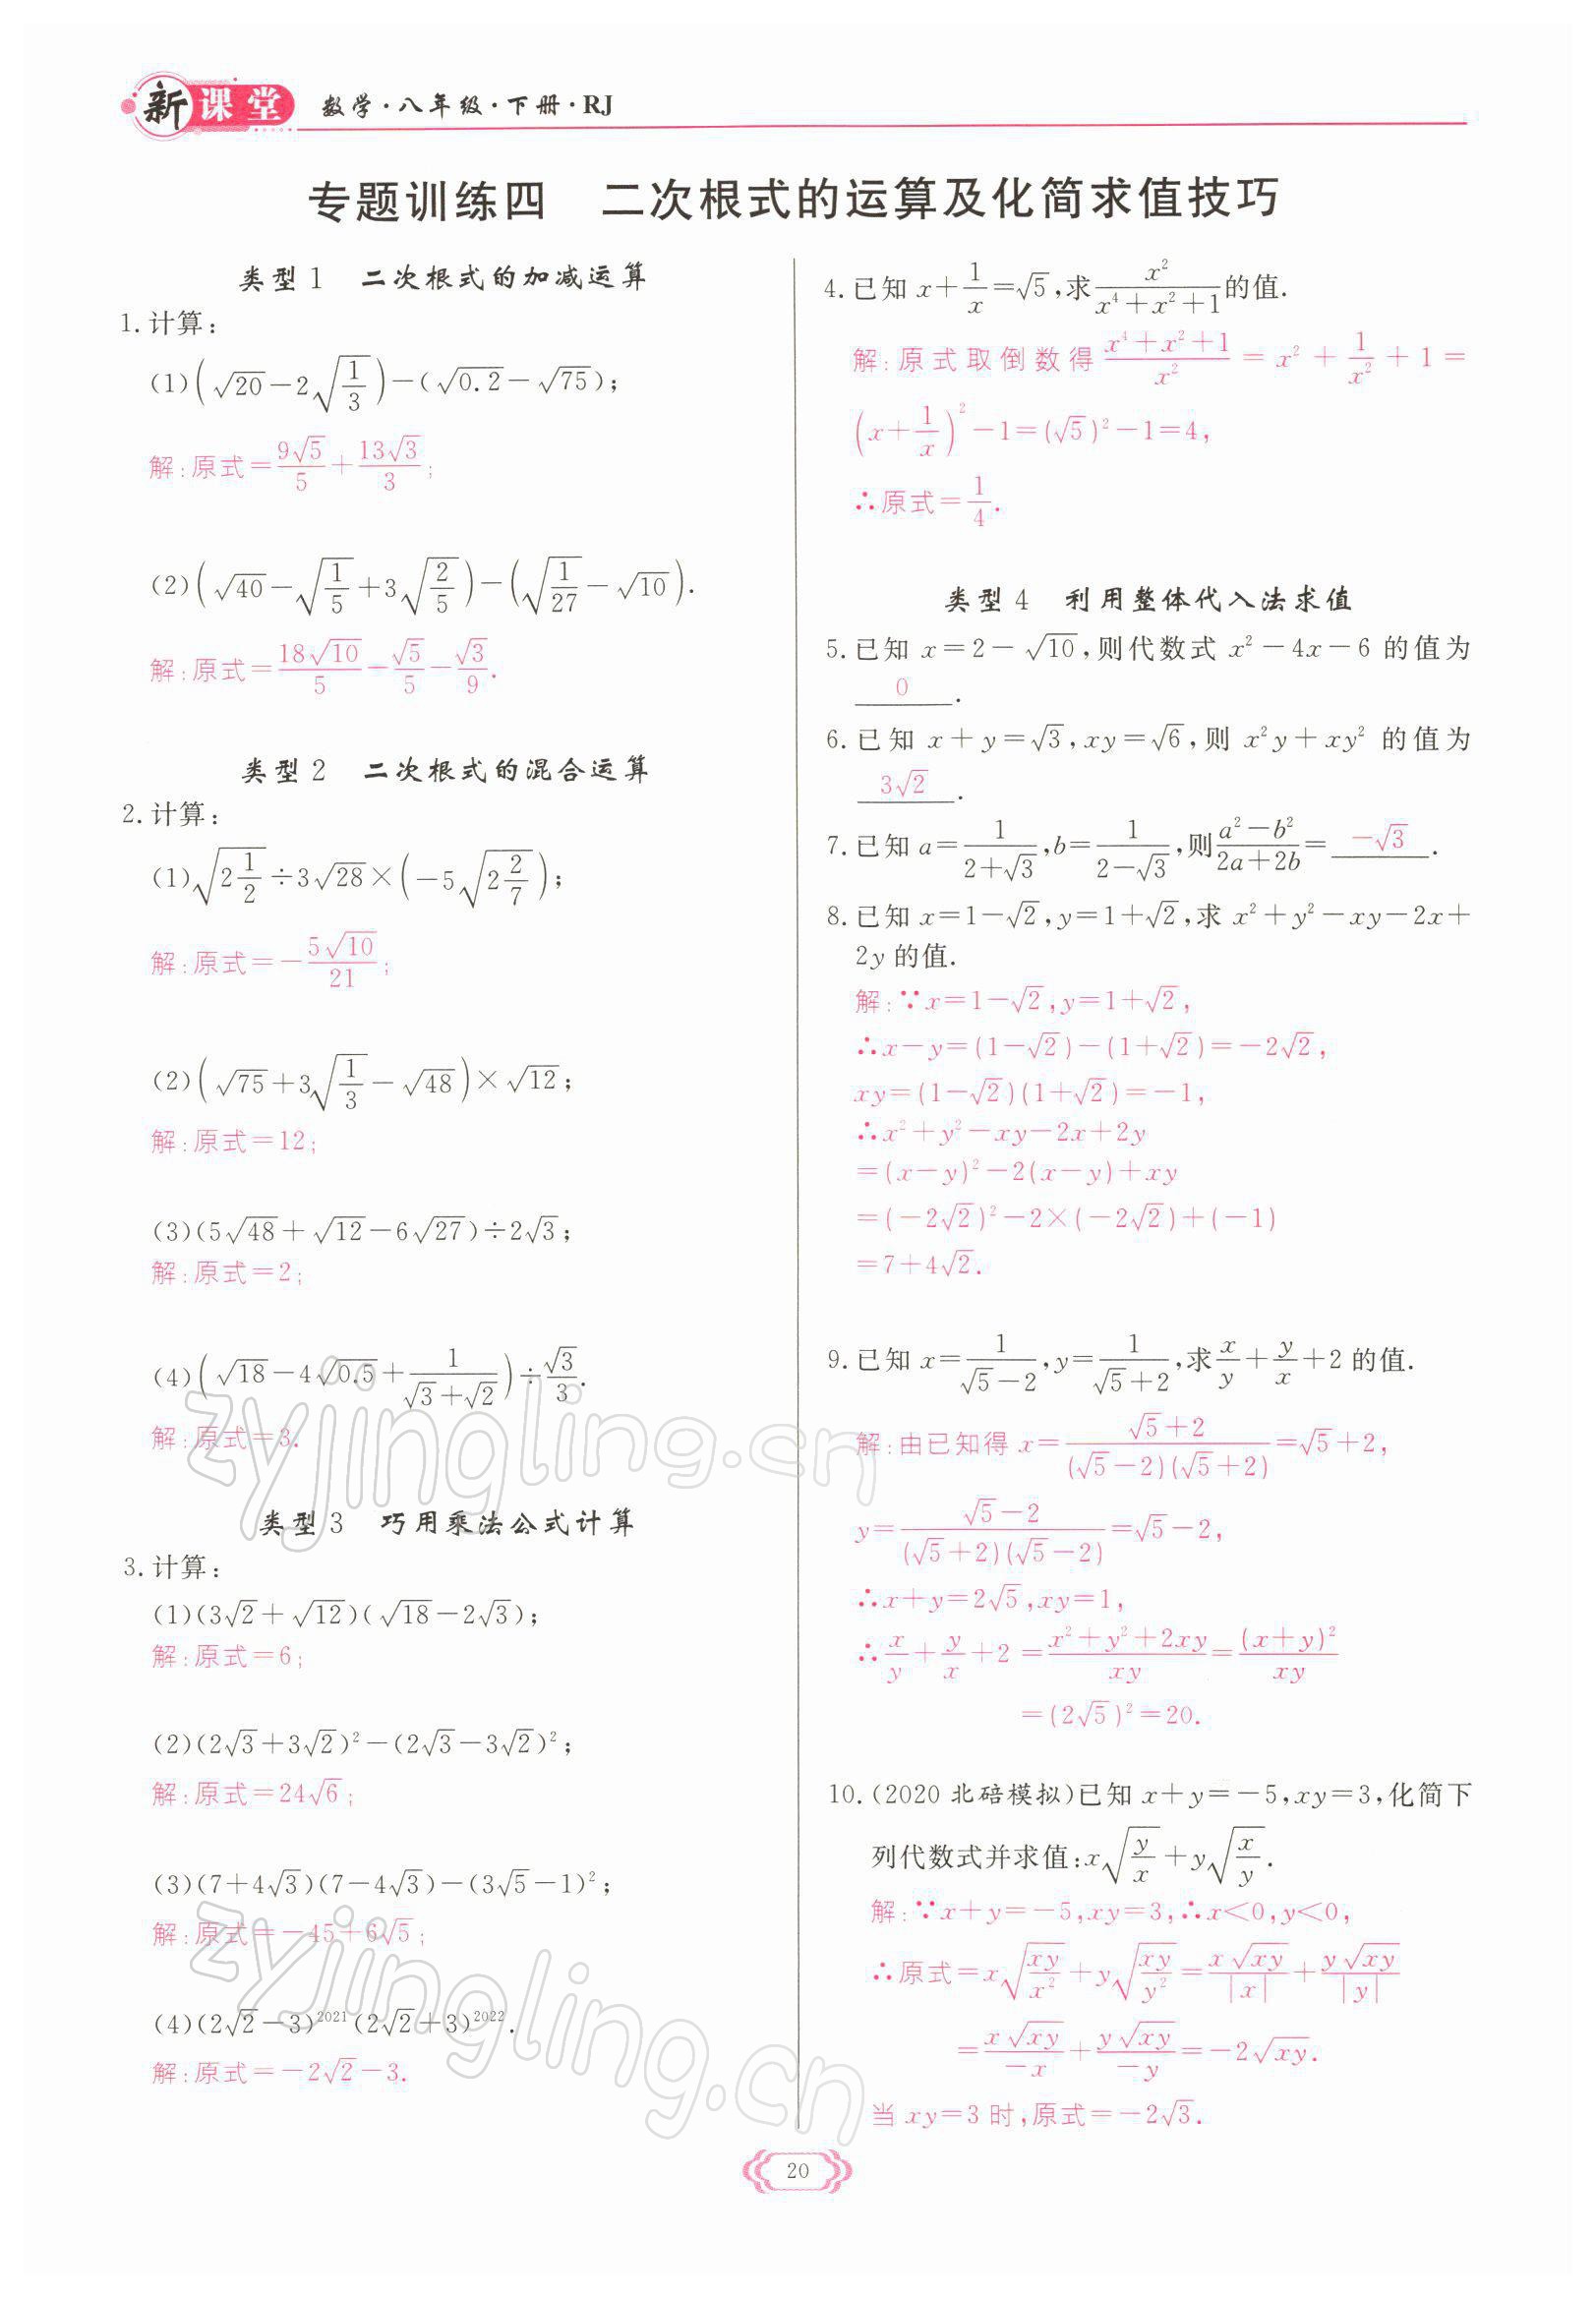 新课堂 数学·八年级·下册·RJ
专题训练四 二次根式的运算及化简求值技巧
类型1 二次根式的加减运算
1.计算:
(1)(√20-2√(1/3))-(√0.2-√75);
解:原式=9√5/5+13√3/3;
(2)(√40-√(1/5)+3√(2/5))-(√(1/27)-√10).
解:原式=18√10/5-√5/5-√3/9.
类型2 二次根式的混合运算
2.计算:
(1)√(2 1/2)÷3√28×(-5√(2 2/7));
解:原式=-5√10/21;
(2)(√75+3√(1/3)-√48)×√12;
解:原式=12;
(3)(5√48+√12-6√27)÷2√3;
解:原式=2;
(4)(√18-4√0.5+1/(√3+√2))÷√3/3.
解:原式=3.
类型3 巧用乘法公式计算
3.计算:
(1)(3√2+√12)(√18-2√3);
解:原式=6;
(2)(2√3+3√2)²-(2√3-3√2)²;
解:原式=24√6;
(3)(7+4√3)(7-4√3)-(3√5-1)²;
解:原式=-45+6√5;
(4)(2√2-3)²⁰²¹(2√2+3)²⁰²².
解:原式=-2√2-3.
4.已知x+1/x=√5,求x²/(x⁴+x²+1)的值.
解:原式取倒数得(x⁴+x²+1)/x²=x²+1/x²+1=
(x+1/x)²-1=(√5)²-1=4,
∴原式=1/4.
类型4 利用整体代入法求值
5.已知x=2-√10,则代数式x²-4x-6的值为
0.
6.已知x+y=√3,xy=√6,则x²y+xy²的值为
3√2.
7.已知a=1/(2+√3),b=1/(2-√3),则(a²-b²)/(2a+2b)=-√3.
8.已知x=1-√2,y=1+√2,求x²+y²-xy-2x+
2y的值.
解:∵x=1-√2,y=1+√2,
∴x-y=(1-√2)-(1+√2)=-2√2,
xy=(1-√2)(1+√2)=-1,
∴x²+y²-xy-2x+2y
=(x-y)²-2(x-y)+xy
=(-2√2)²-2×(-2√2)+(-1)
=7+4√2.
9.已知x=1/(√5-2),y=1/(√5+2),求x/y+y/x+2的值.
解:由已知得x=(√5+2)/((√5-2)(√5+2))=√5+2,
y=(√5-2)/((√5+2)(√5-2))=√5-2,
∴x+y=2√5,xy=1,
∴x/y+y/x+2=(x²+y²+2xy)/xy=(x+y)²/xy
=(2√5)²=20.
10.(2020北碚模拟)已知x+y=-5,xy=3,化简下
列代数式并求值:x√(y/x)+y√(x/y).
解:∵x+y=-5,xy=3,∴x<0,y<0,
∴原式=x√(xy/x²)+y√(xy/y²)=x√xy/|x|+y√xy/|y|
=x√xy/-x+y√xy/-y=-2√xy.
当xy=3时,原式=-2√3.
20
zyjingling.cn
zyjingling.cn